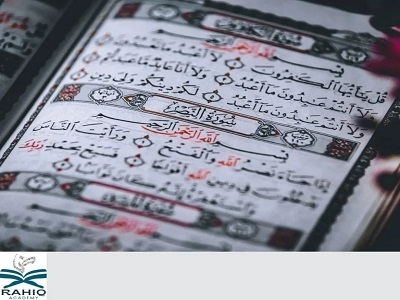 سُورَةُ الْكَافِرُونَ
بِسْمِ اللَّهِ الرَّحْمَٰنِ الرَّحِيمِ
قُلْ يَا أَيُّهَا الْكَافِرُونَ لَا أَعْبُدُ مَا تَعْبُدُونَ
وَلَا أَنْتُمْ عَابِدُونَ مَا أَعْبُدُ وَلَا أَنَا عَابِدٌ مَا عَبَدْتُمْ
وَلَا أَنْتُمْ عَابِدُونَ مَا أَعْبُدُ لَكُمْ دِينُكُمْ وَلِيَ دِينِ
سُورَةُ النَّصْرِ
بِسْمِ اللَّهِ الرَّحْمَٰنِ الرَّحِيمِ
إِذَا جَاءَ نَصْرُ اللَّهِ وَالْفَتْحُ وَرَأَيْتَ النَّاسَ
يَدْخُلُونَ فِي دِينِ اللَّهِ أَفْوَاجًا فَسَبِّحْ بِحَمْدِ رَبِّكَ
وَاسْتَغْفِرْهُ إِنَّهُ كَانَ تَوَّابًا
RAHIQ
ACADEMY